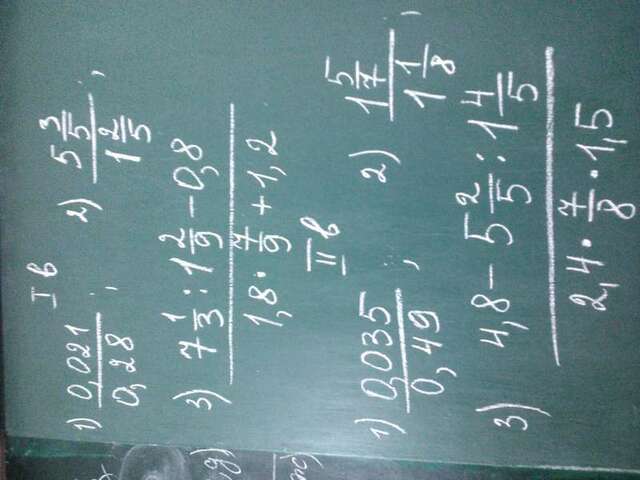 I в
1) 0,021/0,28 ; 2) 5 3/5 / 1 2/5 ;
3) 7 1/3 : 1 2/9 - 0,8
1,8 · 7/9 + 1,2
II в
1) 0,035/0,49 ; 2) 1 5/7 / 1 1/8 ;
3) 4,8 - 5 2/5 : 1 4/5
2,4 · 7/8 · 1,5